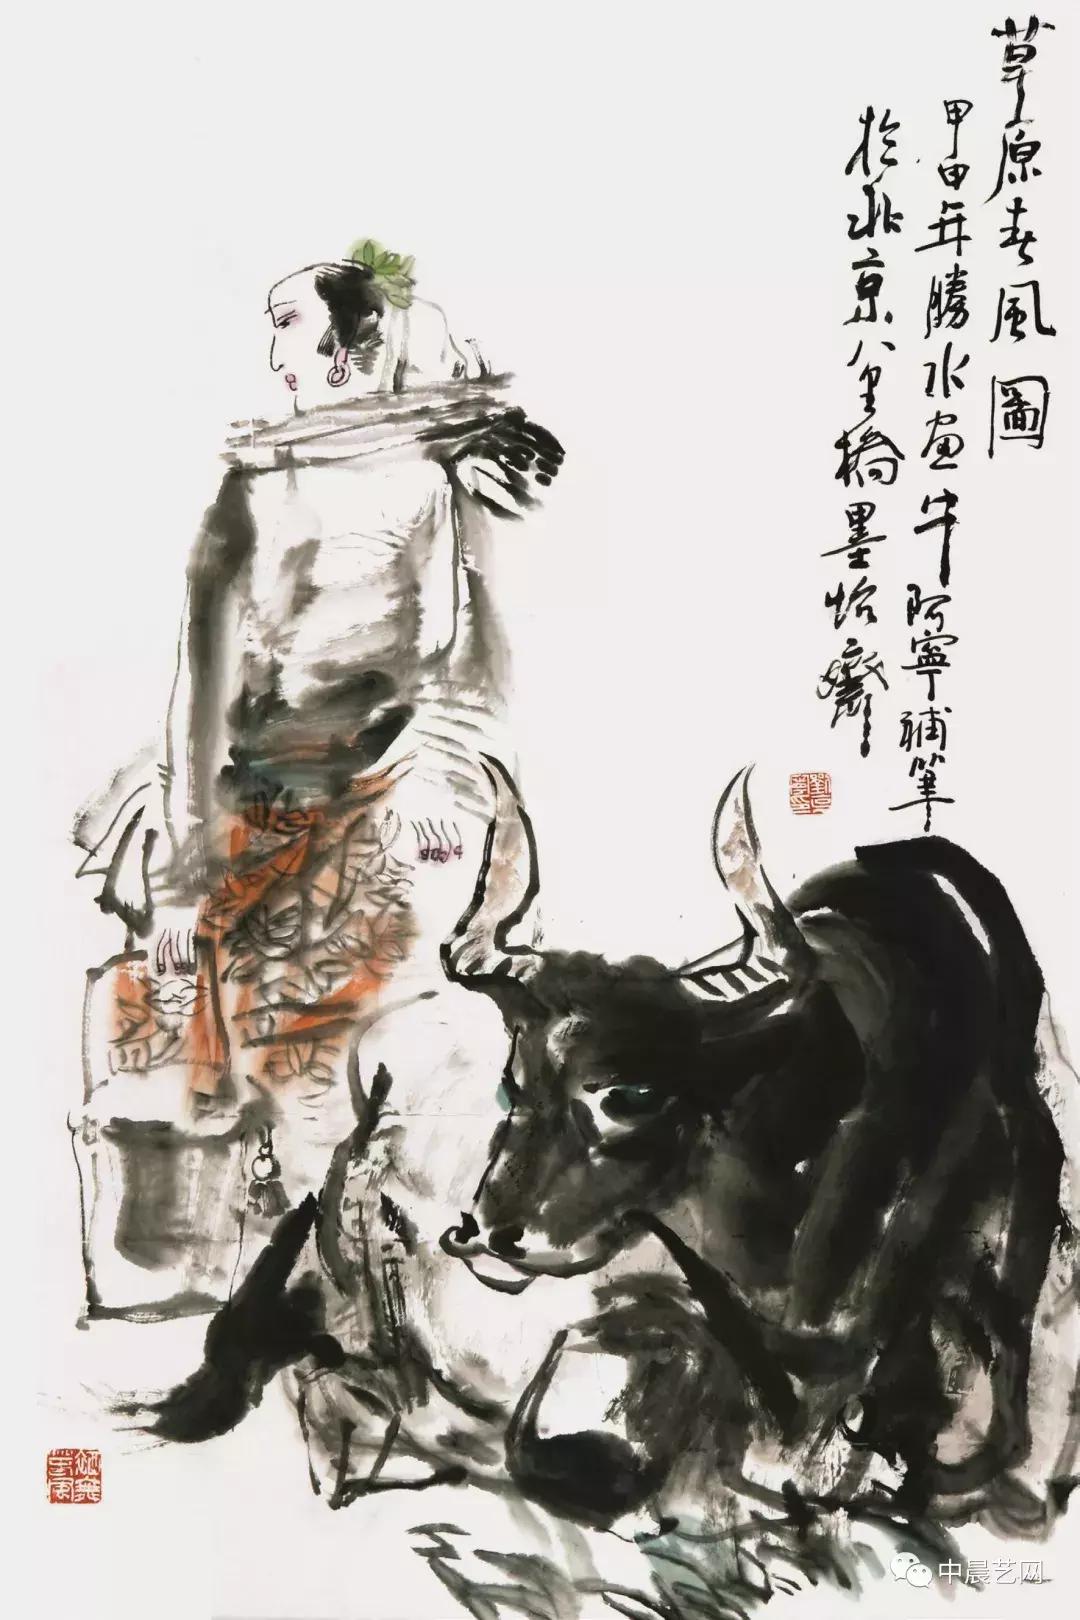 草原春風圖
甲申年勝水画牛阿寧補筆
於北京八里橋墨怡齋
中晨艺网